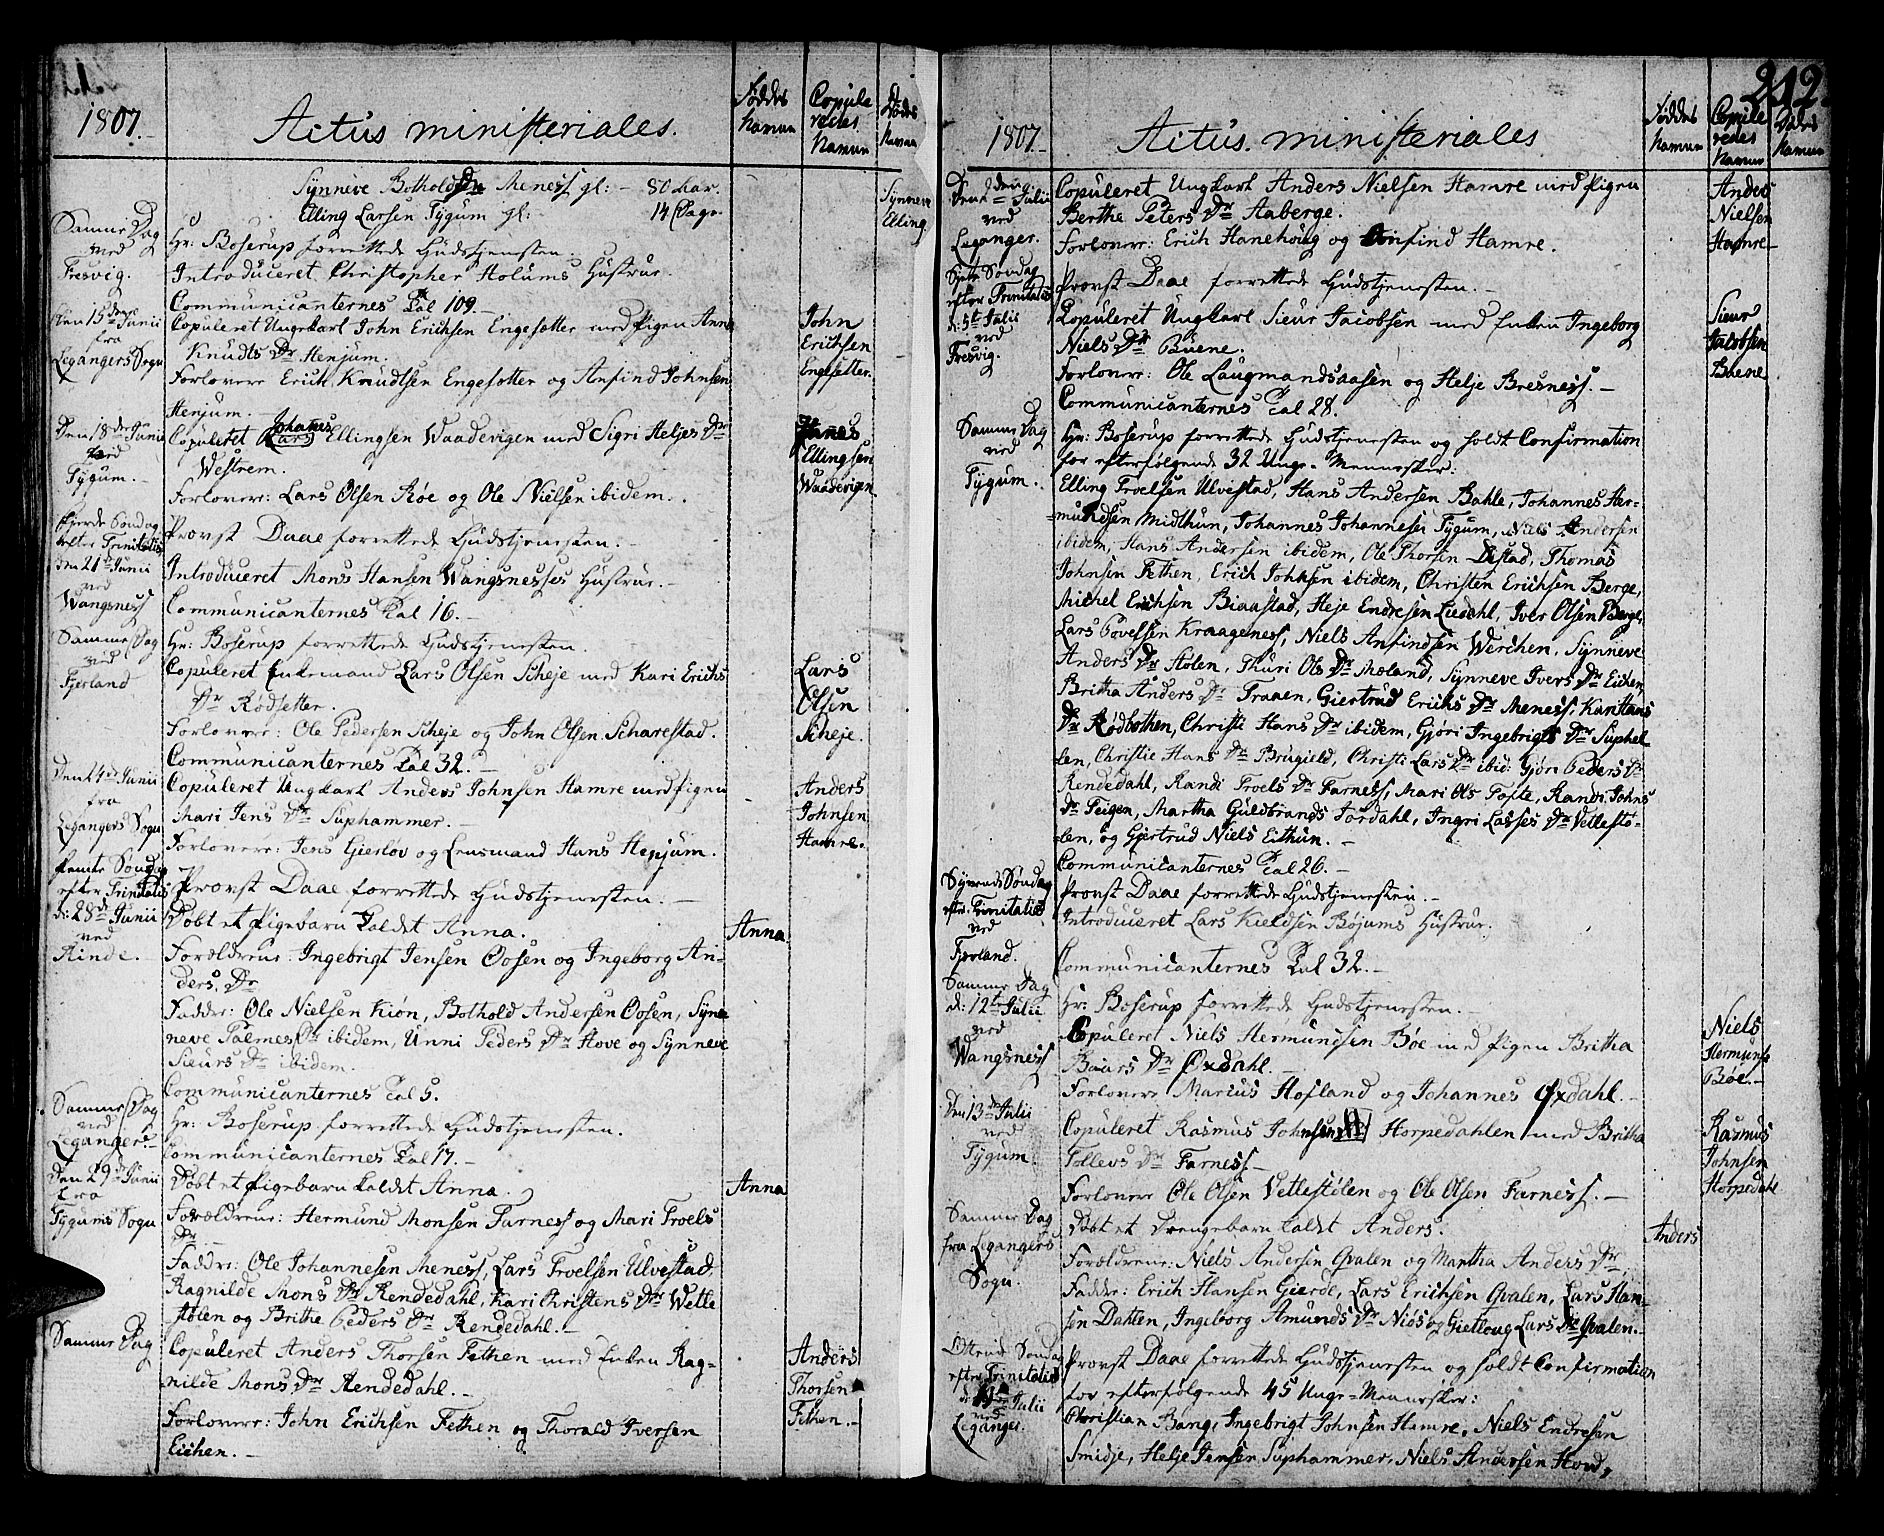 1807.
Actus ministeriales.
Føddes Namun
Copule redes Namun
Dødes Namun
Synneve Botholds Dr Meness gl: - 80 Aar.
Elling Larsen Tygum gl: 14 Dage.
Synneve
Elling
Samme Dag
ved
Fresvig.
Hr: Boserup forrettede Gudstjenesten.
Introduceret Christopher Holums Hustrue.
Communicanternes Tal 109.
Den 15de Junii
fra
Legangers Sogn
Copuleret Ungekarl John Erichsen Engesætter med Pigen Anna
Knudts Dr Henjum.
Forlovere Erich Knudtsen Engesetter og Anfind Johnsen
Henjum.
John
Erichsen
Engesetter.
Den 18de Junii
ved
Tygum.
Copuleret Johanes Ellingsen Waadevigen med Sigri Heljes Dr
Westrem.
Forlovere: Lars Olsen Røe og Ole Nielsen ibidem.
Hanes
Ellingsen
Waadevigen
Fierde Søndag
efter Trinitatis
den 21de Junii
ved
Wangsness
Provst Daae forrettede Gudstjenesten.
Introduceret Mons Hansen Wangsnesses Hustrue.
Communicanternes Tal 16.
Samme Dag
ved
Fjerland
Hr: Boserup forrettede Gudstjenesten.
Copuleret Enkemand Lars Olsen Scheje med Kari Erichs
Dr Rødsetter.
Forlovere: Ole Pedersen Scheje og John Olsen Scharestad.
Communicanternes Tal 32.
Lars
Olsen
Scheje.
Den 24de Junii
fra
Legangers Sogn
Copuleret Ungkarl Anders Johnsen Hamre med Pigen
Mari Jens Dr Suphammer.
Forlovere: Jens Gierløv og Lensmand Hans Henjum.
Anders
Johnsen
Hamre.
Femte Søndag
efter Trinitatis
d: 28de Junii
ved
Rinde.
Provst Daae forrettede Gudstjenesten.
Døbt et Pigebarn kaldet Anna.
Forældrene: Ingebrigt Jensen Oosen og Ingeborg An-
ders Dr
Anna
Fadder: Ole Nielsen Kiøn, Bothold Andersen Oosen, Synne
neve Palmes Dr ibidem, Unni Peders Dr Hove og Synneve
Sieurs Dr ibidem.
Communicanternes Tal 5.
Samme Dag
ved
Leganger.
Hr: Boserup forrettede Gudstjenesten.
Communicanternes Tal 17.
Den 29de Junii
fra
Tygums Sogn
Døbt et Pigebarn kaldet Anna.
Forældrene: Hermund Monsen Farness og Mari Troels
Dr
Anna
Fadder: Ole Johannesen Meness, Lars Troelsen Ulvestad,
Ragnilde Mons Dr Rendedahl, Kari Christens Dr Wetle
stølen og Brithe Peders Dr Rendedahl.
Samme Dag
Copuleret Anders Thorsen Fethen med Enken Rag-
nilde Mons Dr Rendedahl.
Forlovere: John Erichsen Fethen og Thorald Iversen
Eichen.
Anders
Thorsen
Fethen.
212.
1807.
Actus ministeriales
Føddes Namun
Copule redes Namun
Dødes Namun
Den 2den Julii
ved
Leganger.
Copuleret Ungkarl Anders Nielsen Hamre med Pigen
Berthe Peters Dr Aaberge.
Forlovere: Erich Hanehoug og Anfind Hamre.
Anders
Nielsen
Hamre
Siette Søndag
efter Trinitatis
d: 5te Julii
ved
Fresvig.
Provst Daae forrettede Gudstjenesten.
Copuleret Ungkarl Sieur Jacobsen med Enken Ingeborg
Niels Dr Buene.
Forlovere: Ole Laugmandsaasen og Helje Bresness.
Communicanternes Tal 28.
Sieur
Jacobsen
Buene
Samme Dag
ved
Tygum.
Hr: Boserup forrettede Gudstjenesten og holdt Confirmation
for efterfølgende 32 Unge-Mennesker:
Elling Troelsen Ulvestad, Hans Andersen Bahle, Johannes Her-
mundsen Midthun, Johannes Johannesen Tygum, Niels Andersen
ibidem, Hans Andersen ibidem, Ole Thorsen Distad, Thomas
Johnsen Fethen, Erich Johnsen ibidem, Christen Erichsen Berge,
Michel Erichsen Biaastad, Heje Endresen Liedahl, Iver Olsen Berge,
Lars Povelsen Kraageness, Niels Anfindsen Werchen, Synneve
Anders Dr Stølen, Thuri Ols Dr Mæland, Synneve Ivers Dr Eichen,
Britha Anders Dr Traaen, Giertrud Erichs Dr Meness, Kari Hans
Dr Rødbothen, Christi Hans Dr ibidem, Gjøri Ingebrigts Dr Suphel
len, Christie Hans Dr Brugield, Christi Lars Dr ibid: Gjøri Peders Dr
Rendedahl, Randi Troels Dr Farness, Mari Ols Tofte, Randi Johns
Dr Teigen, Martha Guldbrands Jordahl, Ingri Lasses Dr Vetlestø-
len, og Giertrud Niels Eithun.
Communicanternes Tal 26.
Syvende Søndag
eftr. Trinitatis
ved
Fjerland.
Provst Daae forrettede Gudstjenesten.
Introduceret Lars Kieldsen Bøjums Hustrue.
Communicanternes Tal 32.
Samme Dag
d: 12te Julii
ved
Wangsness
Hr: Boserup forrettede Gudstjenesten.
Copuleret Niels Hermundsen Bøe med Pigen Britha
Baurs Dr Oxdahl.
Forlovere Marcus Hofland og Johannes Oxdahl.
Niels
Hermunds
Bøe.
Den 13de Julii
ved
Tygum.
Copuleret Rasmus Johnsen Horpedahlen med Britha
Tollevs Dr Farness.
Forlovere Ole Olsen Vetlestølen og Ole Olsen Farness.
Rasmus
Johnsen
Horpedahl
Samme Dag
fra Legangers
Sogn.
Døbt et Drengebarn kaldet Anders.
Forældrene: Niels Andersen Qvalen og Martha Anders Dr
Fadder: Erich Hansen Gierde, Lars Erichsen Qvalen, Lars Han-
sen Dahlen, Ingeborg Amunds Dr Niøs og Gietloug Lars Dr Qvalen.
Anders
Ottende Søndag
efter Trinitatis
Julii
ved
Leganger.
Provst Daae forrettede Gudstjenesten og holdt Confirmation
for efterfølgende 45 Unge-Mennesker:
Christian Bang, Ingebrigt Johnsen Hamre, Niels Endresen
Smidje, Helje Jensen Suphammer, Niels Andersen Hovd,